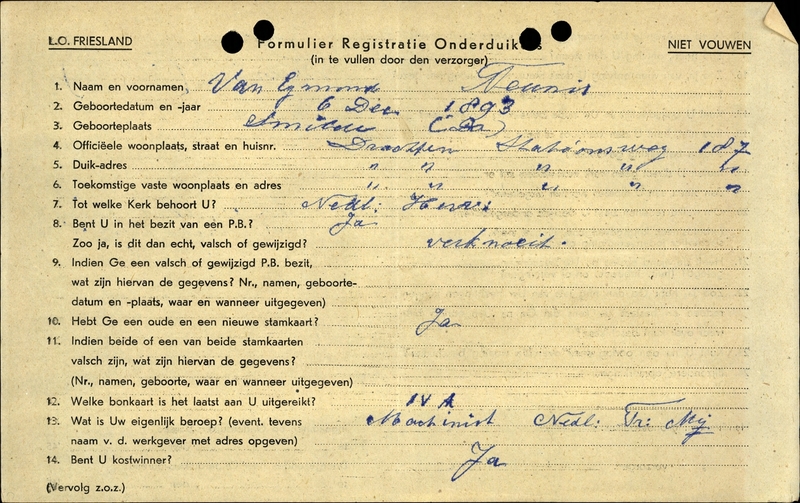 L.O. FRIESLAND
Formulier Registratie Onderduikers
NIET VOUWEN
(in te vullen door den verzorger)
1. Naam en voornamen Van Egmond Teunis
2. Geboortedatum en -jaar 6 Dec 1893
3. Geboorteplaats Smilde (Dr)
4. Officiëele woonplaats, straat en huisnr. Drachten Stationsweg 187
5. Duik-adres " " " " "
6. Toekomstige vaste woonplaats en adres " " " " "
7. Tot welke Kerk behoort U? Nedl: Herv:
8. Bent U in het bezit van een P.B.? Ja
Zoo ja, is dit dan echt, valsch of gewijzigd? verknoeit.
9. Indien Ge een valsch of gewijzigd P.B. bezit,
wat zijn hiervan de gegevens? Nr., namen, geboorte-
datum en -plaats, waar en wanneer uitgegeven)
10. Hebt Ge een oude en een nieuwe stamkaart? Ja
11. Indien beide of een van beide stamkaarten
valsch zijn, wat zijn hiervan de gegevens?
(Nr., namen, geboorte, waar en wanneer uitgegeven)
12. Welke bonkaart is het laatst aan U uitgereikt? IV A
13. Wat is Uw eigenlijk beroep? (event. tevens Machinist Nedl: Tr: Mij
naam v. d. werkgever met adres opgeven)
14. Bent U kostwinner? Ja
(Vervolg z.o.z.)